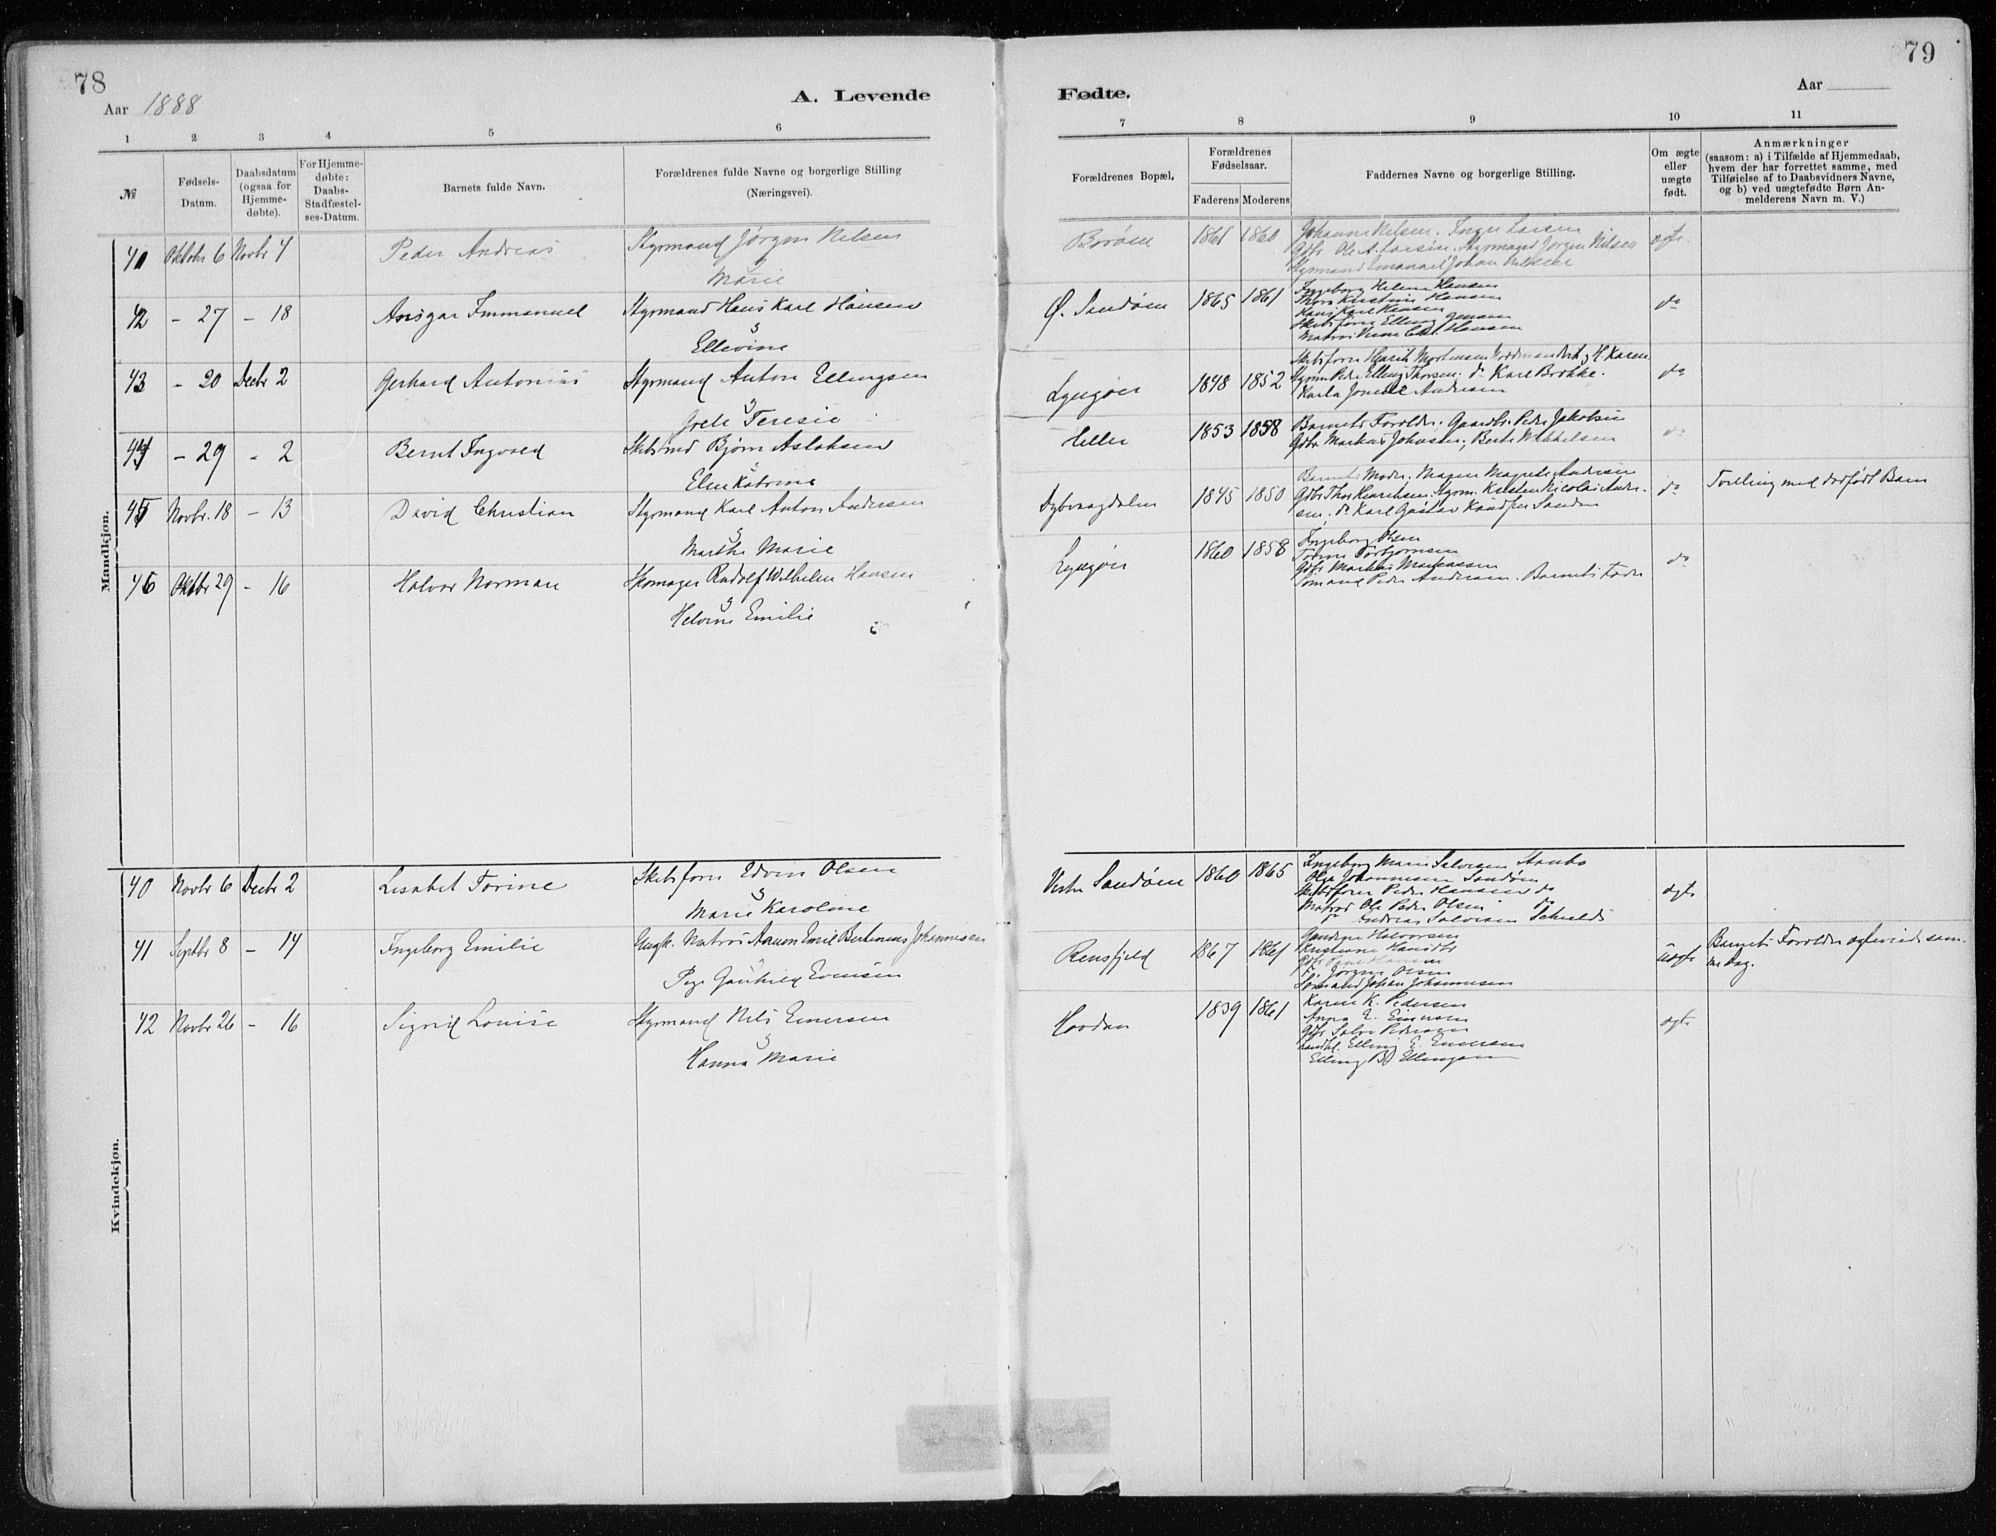 78
79
Aar 1888
A. Levende
Fødte.
Aar
1 2 3 4 5 6
7 8 9 10 11
№
Fødsels-
Datum.
Daabsdatum
(ogsaa for
Hjemme-
døbte).
For Hjemme-
døbte:
Daabs-
Stadfæstel-
ses-Datum.
Barnets fulde Navn.
Forældrenes fulde Navne og borgerlige Stilling
(Næringsvei).
Forældrenes Bopæl,
Forældrenes
Fødselsaar.
Faderens Moderens
Faddernes Navne og borgerlige Stilling.
Om ægte
eller
uægte
født.
Anmærkninger
(saasom: a) i Tilfælde af Hjemmedaab,
hvem der har forrettet samme, med
Tilføielse af to Daabsvidners Navne,
og b) ved uægtefødte Børn An-
melderens Navn m. V.)
Mandkjøn.
41 Oktobr 6 Novbr 4 Peder Andreas Styrmand Jørgen Nilsen
Marie
Borøen 1861 1860 Johanne Nilsen. Inger Larsen
Gdbr Ole A. Larsen. Styrmand Jørgen Nilsen
Styrmand Emanuel Johan Nilsen
ægte
42 - 27 - 18 Ansgar Immanuel Styrmand Hans Karl Hansen
Ellevine
Ø. Sandøen 1865 1861 Ingeborg Helene Hansen
Thora Kirstine Hansen
Hans Karl Hansen
Skibsfører Elling Jensen
Matros Hansen
do
43 - 20 Decbr 2 Gerhard Antonius Styrmand Anton Ellingsen
Grete Teresie
Lyngøer 1848 1852 Skibsfører Henrik Mortensen H. Karen
Styrm Peder Elling Thorsen. do Karl Brokke.
Karla Andersen
do
44 - 29 - 2 Bernt Ingvald Skibstmd Bjørn Aslaksen
Elen Katrine
Heller 1853 1858 Barnets Forældre. Gaardbr. Peder Jakobsen
Gdbr Markus Johnsen; Berte Mikkelsen
do
45 Novbr. 18 - 13 David Christian Styrmand Karl Anton Andersen
Marthe Marie
Dybvaagdalen 1845 1850 Barnets Moder. Magrete Andersen
Gdbr Thor Henriksen. Styrm. Kristen Nicolai Ander-
sen. do Karl Gustav Knudsen Sanden
do Tvilling med dødfødt Barn
46 Oktbr 29 - 16 Halvor Norman Skomager Rudolf Wilhelm Hansen
Helvine Emilie
Lyngøer 1860 1858 Ingeborg Olsen
Torine Torbjørnsen
Gdbr Markus Markussen
Sømand Peder Andersen. Barnets Fader
do
Kvindekjøn.
40 Novbr 6 Decbr 2 Lisabet Torine Skibsfører Edvin Olsen
Marie Karoline
Vestre Sandøen 1860 1865 Ingeborg Marie Salvesen
Olga Johannesen Sandøen
Skibsfører Peder Hansen do
Matros Ole Peder Olsen do
do Andreas Salvesen
ægte
41 Septbr 8 - 14 Ingeborg Emilie Ungk. Matros Emil Bertinius Johannesen
Pige Gunhild Evensen
Rensfjeld 1867 1861 Halvorsen
Kristiane
Gdbr Hansen
do Jørgen Olsen
Sømand Johan Johannesen
uægte Barnets Forældre ægteviede sam-
me Dag.
42 Novbr 26 - 16 Sigrid Louise Styrmand Nils Einersen
Hanna Marie
Hovdan 1839 1861 Karen K. Pedersen
Anna E. Einersen
Gdbr Salve Pedersen
Elling E. Einersen
Elling Ellingsen
ægte